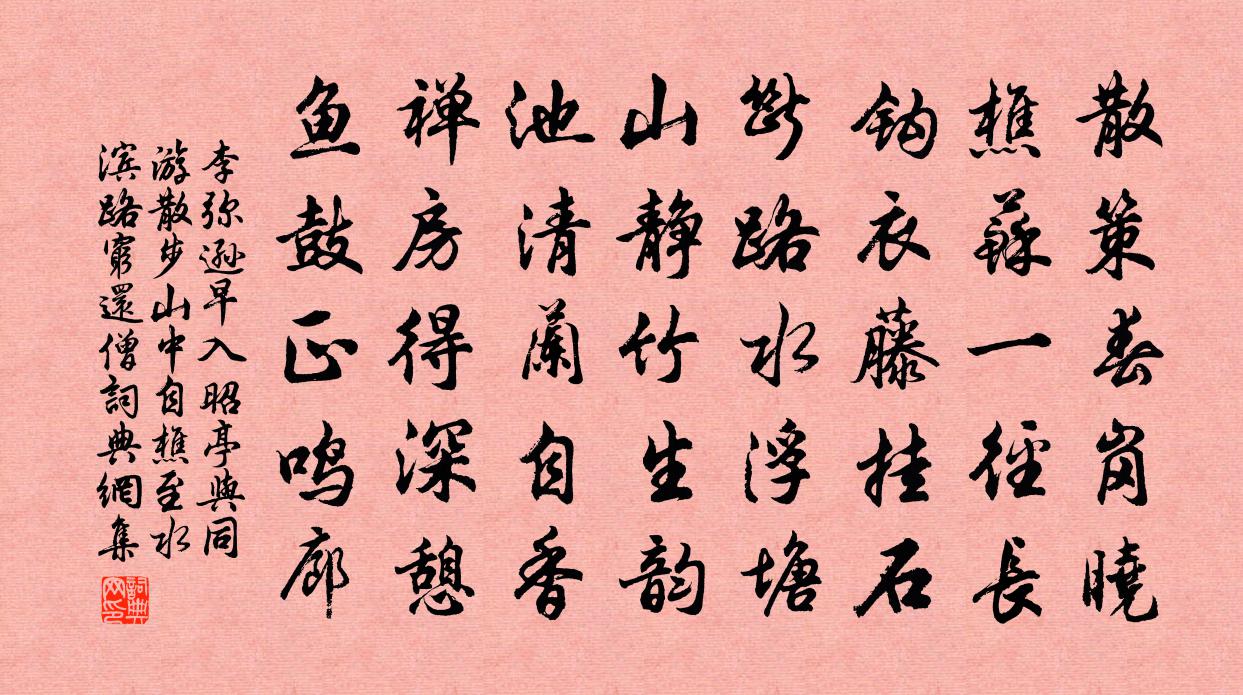 散策春岗曉
樵蘇一徑長
鈎衣藤挂石
斷路水浮塘
山静竹生韵
池清蘭自香
禅房得深憩
鱼鼓正鸣廊
李弥遜早入昭亭與同
游散步山中自樵至水
滨路窮還僧詞典網集
詞典
网印